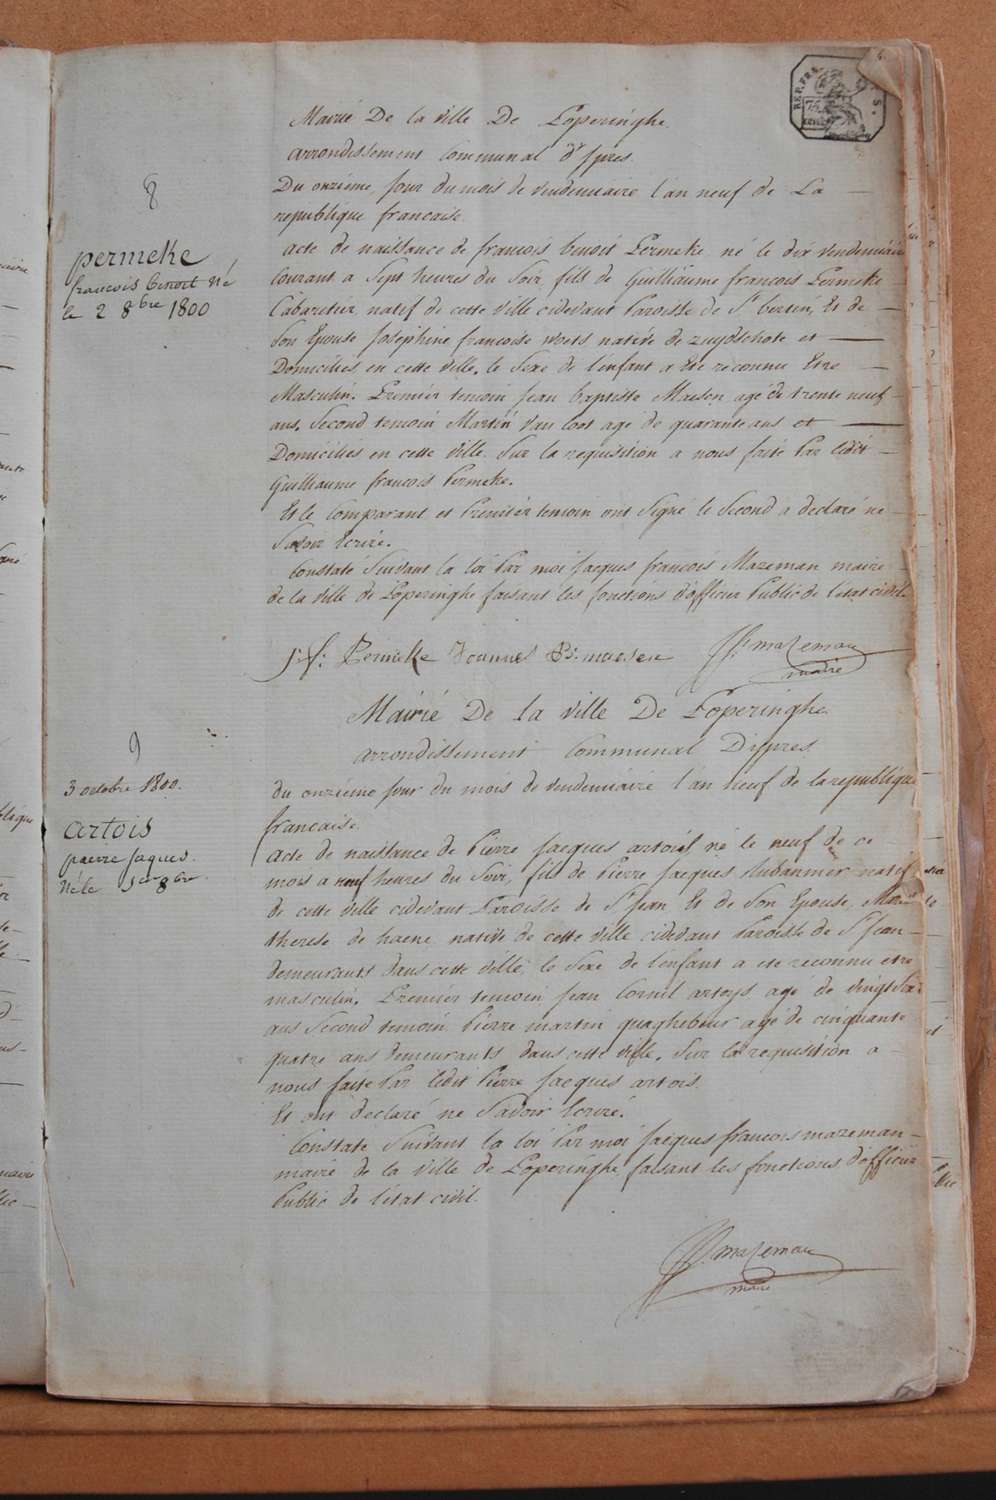 REP. FRA.
75
CENT.
Mairié De la ville De Poperinghe
arrondissement Communal d'ypres.
Du onzième jour du mois de vendemiaire l'an neuf de La
republique francaise.
8
permeke
francois benoit né
le 2 8bre 1800
acte de naissance de francois benoit Permeke né le dix vendemiaire
Courant a Sept heures du Soir, fils de Guilliaume francois Permeke
Cabaretier natif de cette ville cidevant Paroisse de St bertin, Et de
Son Epouse Josephine francoise Woets native de zuydschote et
Domiciliés en cette ville. le Sexe de l'enfant a été reconnu Etre
Masculin. Premier temoin Jean baptiste Maesen agé de trente neuf
ans. Second temoin Martin Van loot agé de quarante ans et
Domiciliés en cette ville. Sur la requisition a nous faite Par ledit
Guilliaume francois Permeke.
Et le Comparant et Premier temoin ont Signé le Second a declaré ne
Savoir Ecrire.
Constaté Suivant la loi Par moi Jacques francois Mazeman maire
de la ville de Poperinghe faisant les fonctions d'officier Public de l'état civil.
Permeke Joannes Bt. maesen JF mazeman
maire
Mairié De la ville De Poperinghe
arrondissement Communal D'ypres
9
3 octobre 1800.
artois
pierre Jaques
né le 1er 8bre
du onzième jour du mois de vendemiaire l'an neuf de la republique
francaise.
acte de naissance de Pierre Jacques artois, né le neuf de ce
mois a neuf heures du Soir, fils de Pierre Jacques natif
de cette ville cidevant Paroisse de St Jean Et de Son Epouse, Marie
therese de haene native de cette ville cidevant Paroisse de St Jean
demeurants dans cette ville, le Sexe de l'enfant a été reconnu etre
masculin. Premier temoin Jean Cornil artoys agé de vingt Six
ans Second temoin Pierre martin quaghebeur agé de cinquante
quatre ans demeurants dans cette ville. Sur la requisition a
nous faite Par ledit Pierre Jacques artois.
Et ont declaré ne Savoir Ecrire.
Constaté Suivant la loi Par moi Jacques francois mazeman
maire de la ville de Poperinghe faisant les fonctions d'officier
Public de l'état civil.
JF mazeman
maire